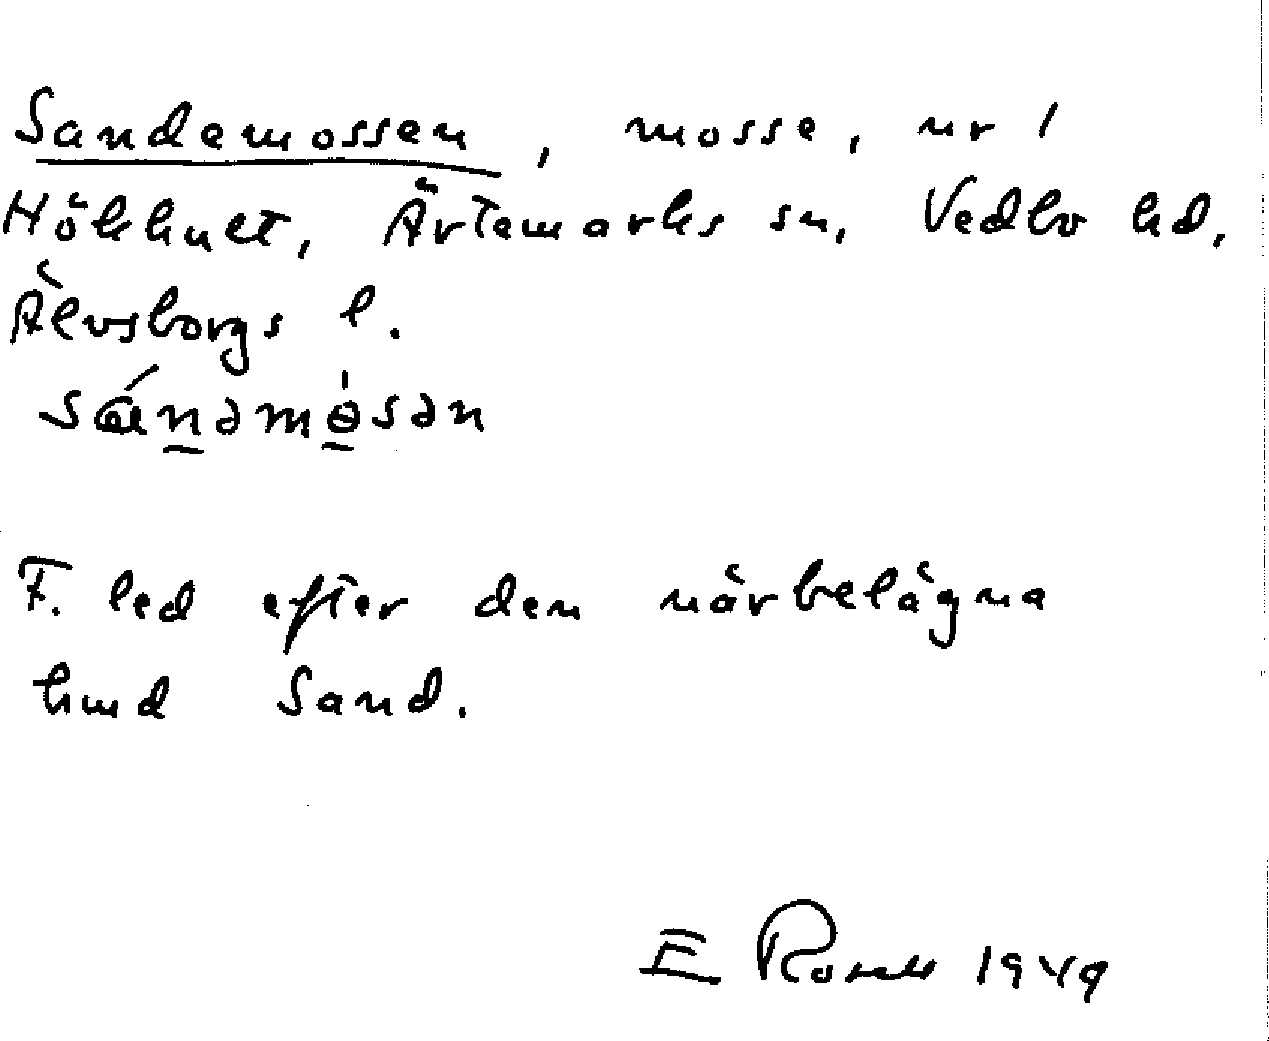 Sandemossen, mosse, nr 1
Hökhult, Ärtemarks sn, Vedbo hd,
Älvsborgs l.
F. led efter den närbelägna
hmd Sand.
E Rosell 1949